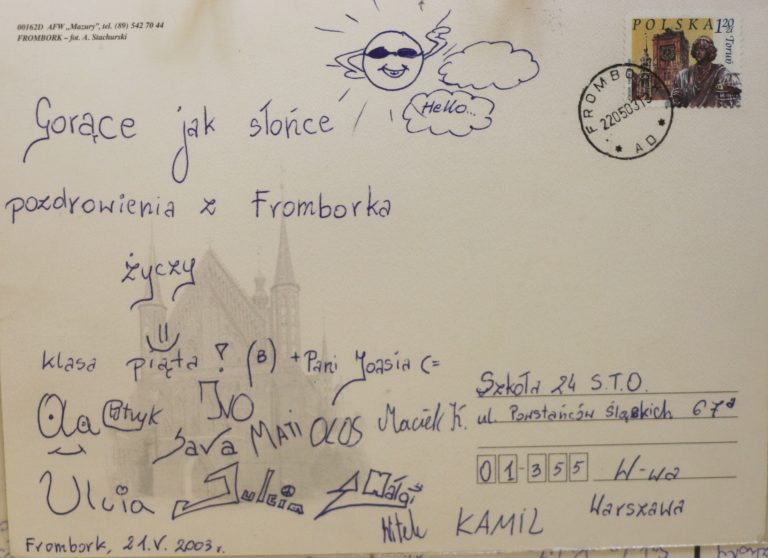 00162D AFW „Mazury”, tel. (89) 542 70 44
FROMBORK – fot. A. Stachurski
POLSKA 1,20 zł
Toruń
FROMBORK
220503
AD
Hello...
Gorące jak słońce
pozdrowienia z Fromborka
życzy
klasa piąta! (B) + Pani Joasia (=
Ola Patryk IVO
Sara MATI OLOS Maciek K.
Ulcia Julcia Małgi
Witek KAMIL
Frombork, 21.V. 2003r.
Szkoła 24 S.T.O.
ul. Powstańców Śląskich 67a
01-355 W-wa
Warszawa